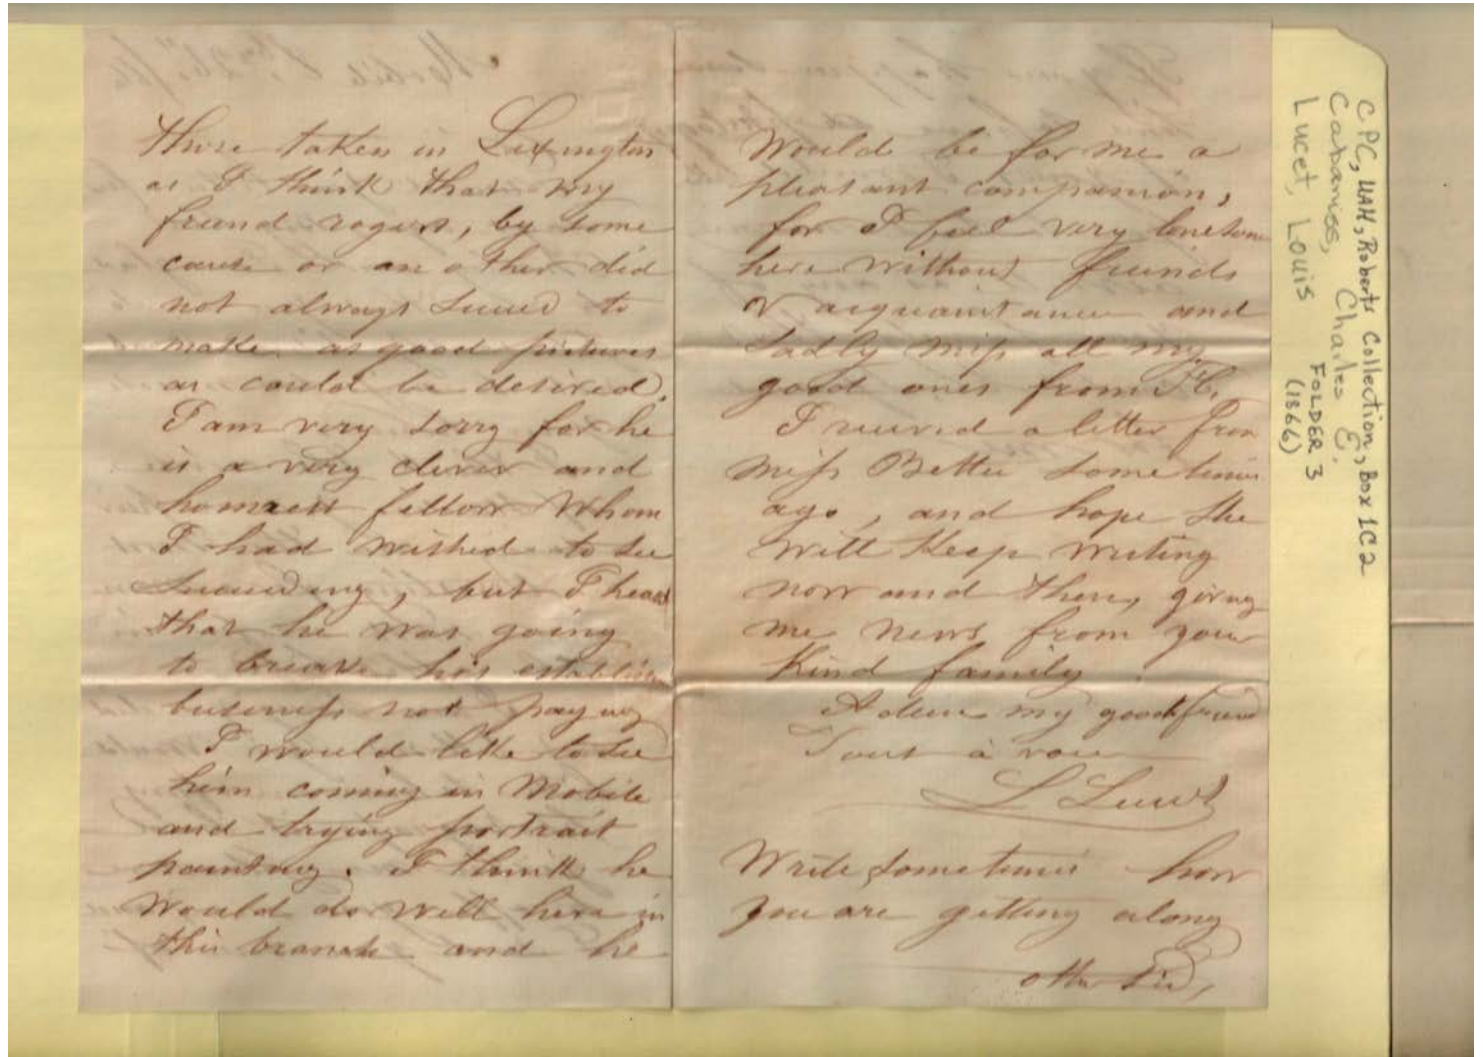 those taken in Lexington
as I think that my
friend rogers, by some
cause or an other did
not always succeed to
make as good pictures
as could be desired.
I am very sorry for he
is a very clever and
homest fellow whom
I had wished to see
succeeding, but I heard
that he was going
to breake his establis
business not paying
I would like to see
him coming in Mobile
and trying portrait
painting. I think he
Would do well here in
this branch and he
Would be for me a
pleasant companion,
for I feel very lonesome
here without friends
& acquaintances and
Sadly miss all my
good ones from H.
I received a letter from
miss Bettie sometimes
ago, and hope she
will Keep writing
now and then, giving
me news from your
Kind family.
Adieu my good friend
Tout à vous
L Lucet
Write sometimes how
you are getting along
other side,
CPC, UAH, Roberts Collection, Box 1C2
Cabaniss, Charles E.
Lucet, Louis FOLDER 3
(1866)